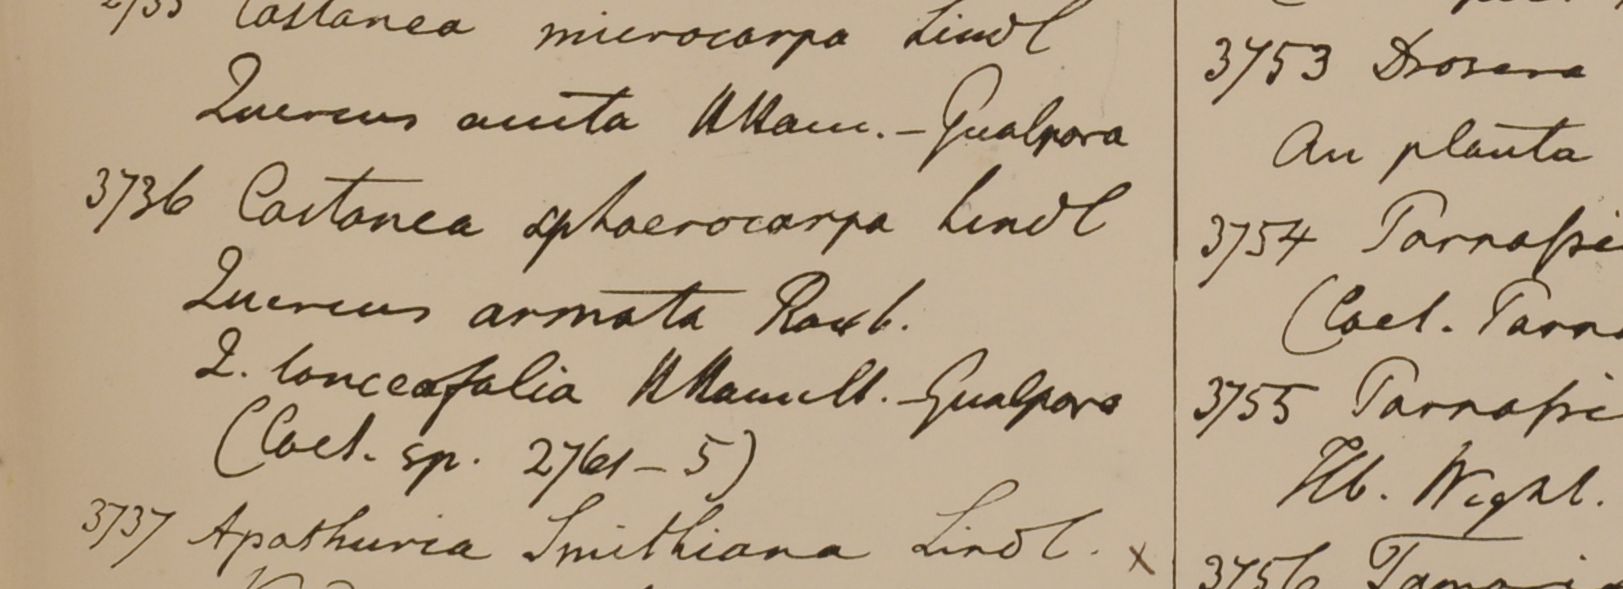 Castanea microcarpa Lindl
Quercus acuta HHam. - Gualpara
3736 Castanea sphaerocarpa Lindl
Quercus armata Roxb.
Q. lanceafolia HHamilt. - Gualpara
(Caet. sp. 2761-5)
3737 Apathuria Smithiana Lindl. x
3753 Drosera
An planta
3754 Parnassi
(Caet. Parn
3755 Parnassi
Hb. Wight.
3756 Tamari